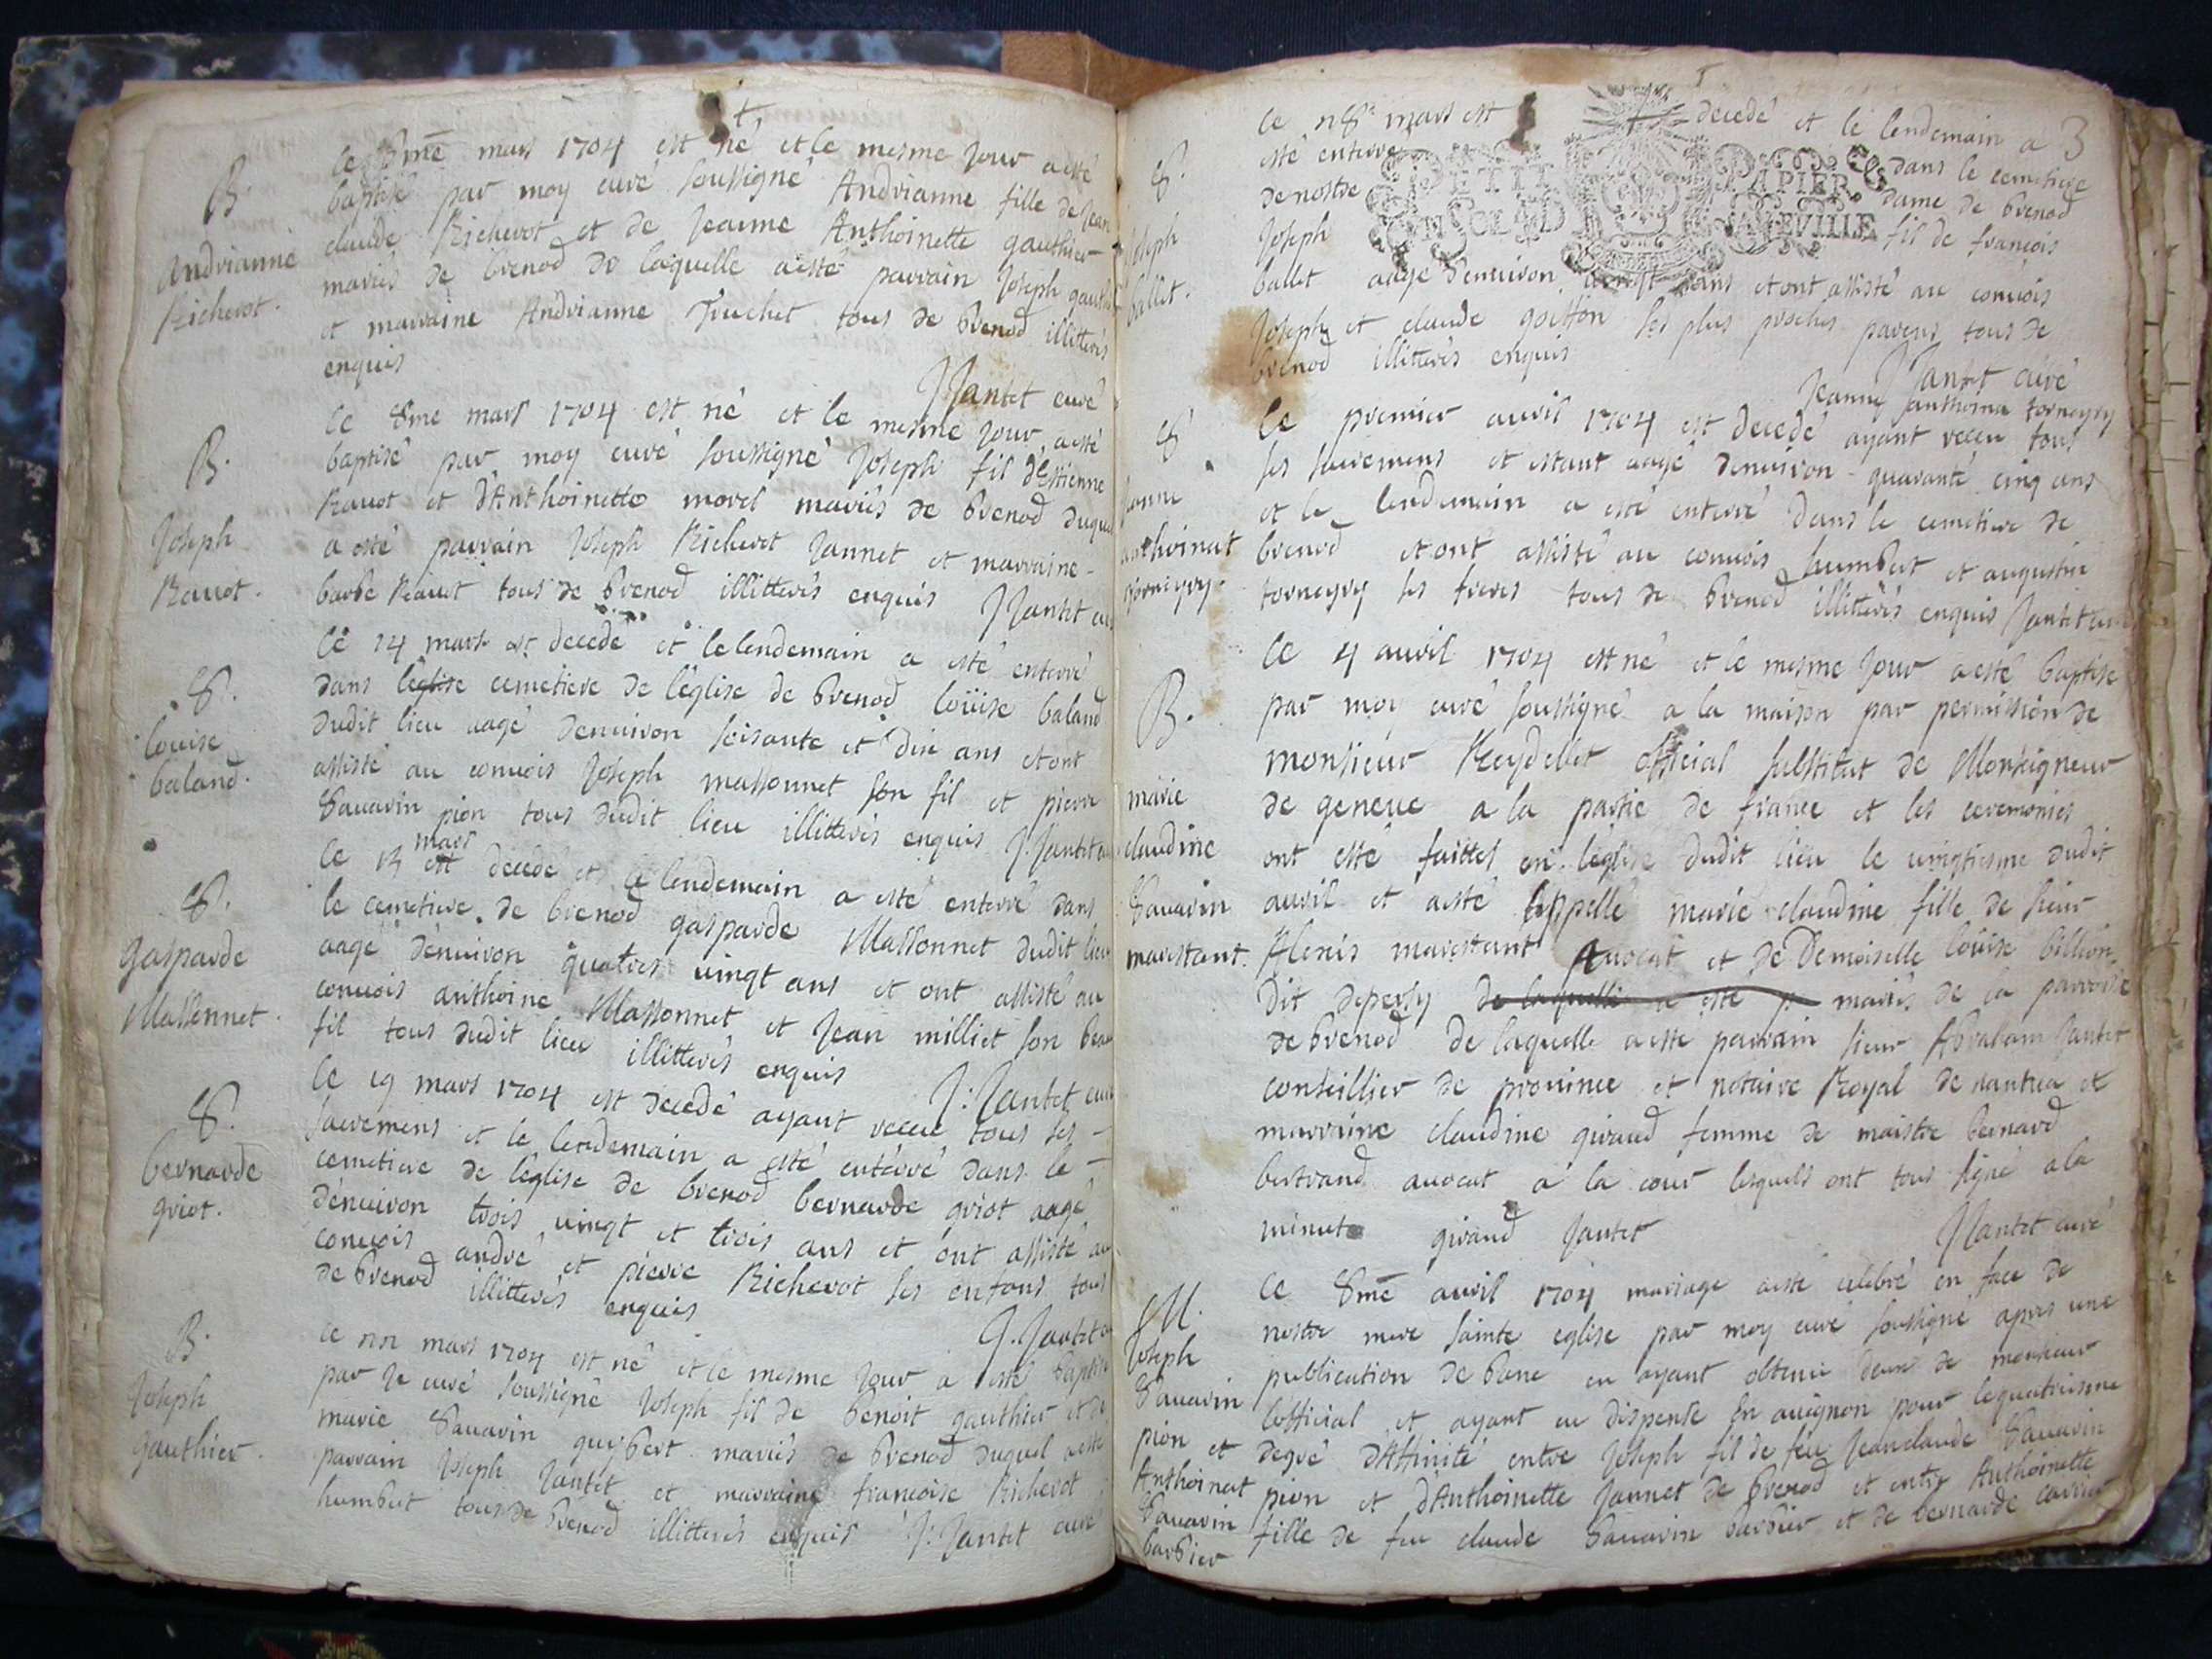 B.
Andrianne
Richerot.
mars 1704 est né et le mesme jour a esté
baptisé par moy curé soussigné Andrianne fille de Jean
claude Richerot et de Jeanne Anthoinette gauthier
mariés de brenod de laquelle a esté parrain Joseph
et marraine Andrianne Truchet tous de brenod illitterés
enquis
J Jantet curé
B.
Joseph
Ravot.
le 8me mars 1704 est né et le mesme jour a esté
baptisé par moy curé soussigné Joseph fil dEstienne
Ravot et dAnthoinette morel mariés de brenod duquel
a esté parrain Joseph Richerot Jannet et marraine
barbe Ravot tous de brenod illitterés enquis J Jantet
S.
louise
baland.
le 14 mars est decedé et le lendemain a esté enterré
dans leglise cemetiere de l'église de brenod loüise baland
dudit lieu aagé denuiron soisante et dix ans et ont
assisté au conuois Joseph massonnet son fil et pierre
Sauarin pion tous dudit lieu illitterés enquis J: Jantet
S.
gasparde
Massonnet.
mars
le 15 est decedé et le lendemain a esté enterré dans
le cemetiere de brenod gasparde Massonnet dudit lieu
aagé denuiron quatres uingt ans et ont assisté au
conuois anthoine Massonnet et Jean milliet son beau
fil tous dudit lieu illitterés enquis
J: Jantet
S.
bernarde
griot.
le 19 mars 1704 est decedé ayant receu tous ses
sacremens et le lendemain a esté enterré dans le
cemetiere de l'église de brenod bernarde griot aagé
denuiron trois uingt et trois ans et ont assisté au
conuois andré et pierre Richerot ses enfans tous
de brenod illitterés enquis
J. Jantet
B.
Joseph
gauthier.
mars 1704 est né et le mesme jour a esté baptisé
par le curé soussigné Joseph fil de benoit gauthier et de
marie Sauarin guybert mariés de brenod duquel a esté
parrain Joseph Jantet et marraine francoise Richerot
humbert tous de brenod illitterés enquis J: Jantet curé
3
S.
Joseph
ballet.
mars est decedé et le lendemain a
esté enterré dans le cemetiere
de nostre dame de brenod
Joseph fil de francois
PETIT PAPIER
ballet aagé denuiron uingt ans et ont assisté au conuois
Joseph et claude goitton ses plus proches parens tous de
brenod illitterés enquis
J Jantet curé
S.
Jeanne
anthoinat
torneyry.
Jeanne anthoina torneyry
le premier auril 1704 est decedé ayant receu tous
ses sacremens et estant aagé denuiron quarante cinq ans
et le lendemain a esté enterré dans le cemetiere de
brenod et ont assisté au conuois humbert et augustin
torneyry ses freres tous de brenod illitterés enquis Jantet
B.
marie
claudine
Sauarin
marestant.
le 4 auril 1704 est né et le mesme jour a esté baptisé
par moy curé soussigné a la maison par permission de
monsieur Reydellet official substitut de Monseigneur
de geneue a la partie de france et les ceremonies
ont esté faittes en léglise dudit lieu le uingtiesme dudit
auril et a esté appellé marie claudine fille de sieur
Alexis marestant Auocat et de Demoiselle loüise billion
dit deperty de laquelle a esté p mariés de la parroisse
de brenod de laquelle a esté parrain sieur Abraham Jantet
conseillier de prouince et notaire Royal de nantua et
marraine claudine giraud femme de maistre bernard
bertrand auocat a la cour lesquels ont tous signé a la
minute giraud Jantet
J Jantet curé
M.
Joseph
Sauarin
pion et
Anthoinat
Sauarin
barbier
le 8me auril 1704 mariage a esté celebré en face de
nostre mere sainte eglise par moy curé soussigné apres une
publication de banc en ayant obtenu deux de monsieur
lofficial et ayant eu dispense en auignon pour le quatriesme
degré dAffinité entre Joseph fil de feu Jeanclaude Sauarin
pion et dAnthoinette Jannet de brenod et entre Anthoinette
fille de feu claude Sauarin barbier et de bernarde